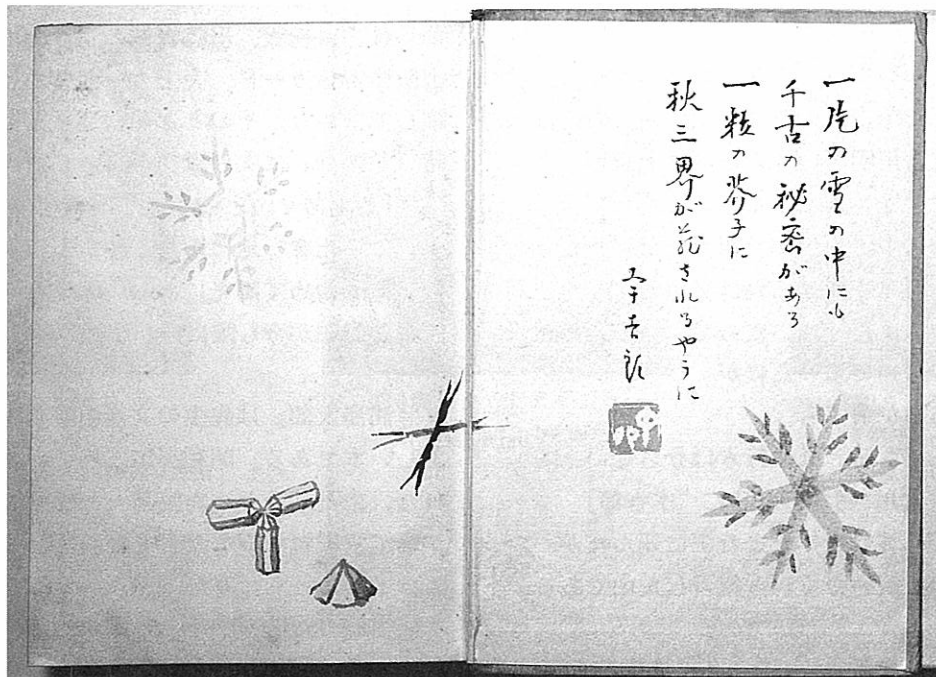 一片の雪の中にも
千古の秘密がある
一粒の芥子に
秋三界が蔵されるやうに
宇吉郎